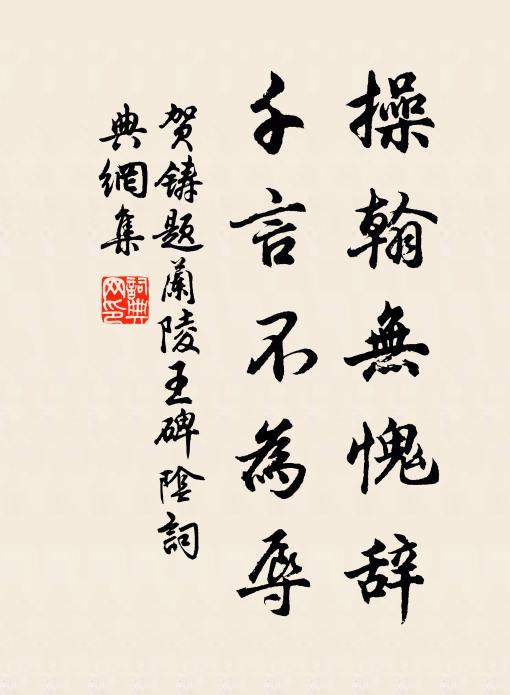 操翰無愧辞
千言不為辱
贺鑄题蘭陵王碑陰詞
典網集
詞典
网印